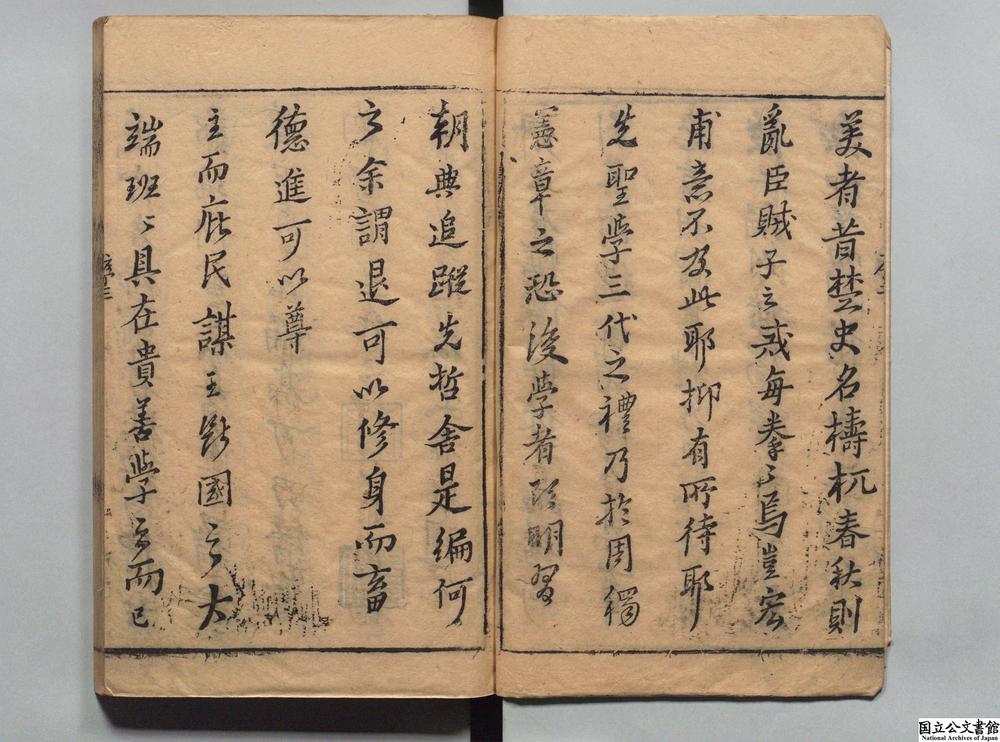 美者昔楚史名檮杌春秋則
亂臣賊子之戒每拳〻焉豈宏
甫意不及此耶抑有所待耶
先聖學三代之禮乃於周獨
憲章之恐後學者欲明習
朝典追蹤先哲舍是編何
之余謂退可以修身而畜
德進可以尊
主而庇民謀王斷國之大
端班〻具在貴善學之而已
国立公文書館
National Archives of Japan